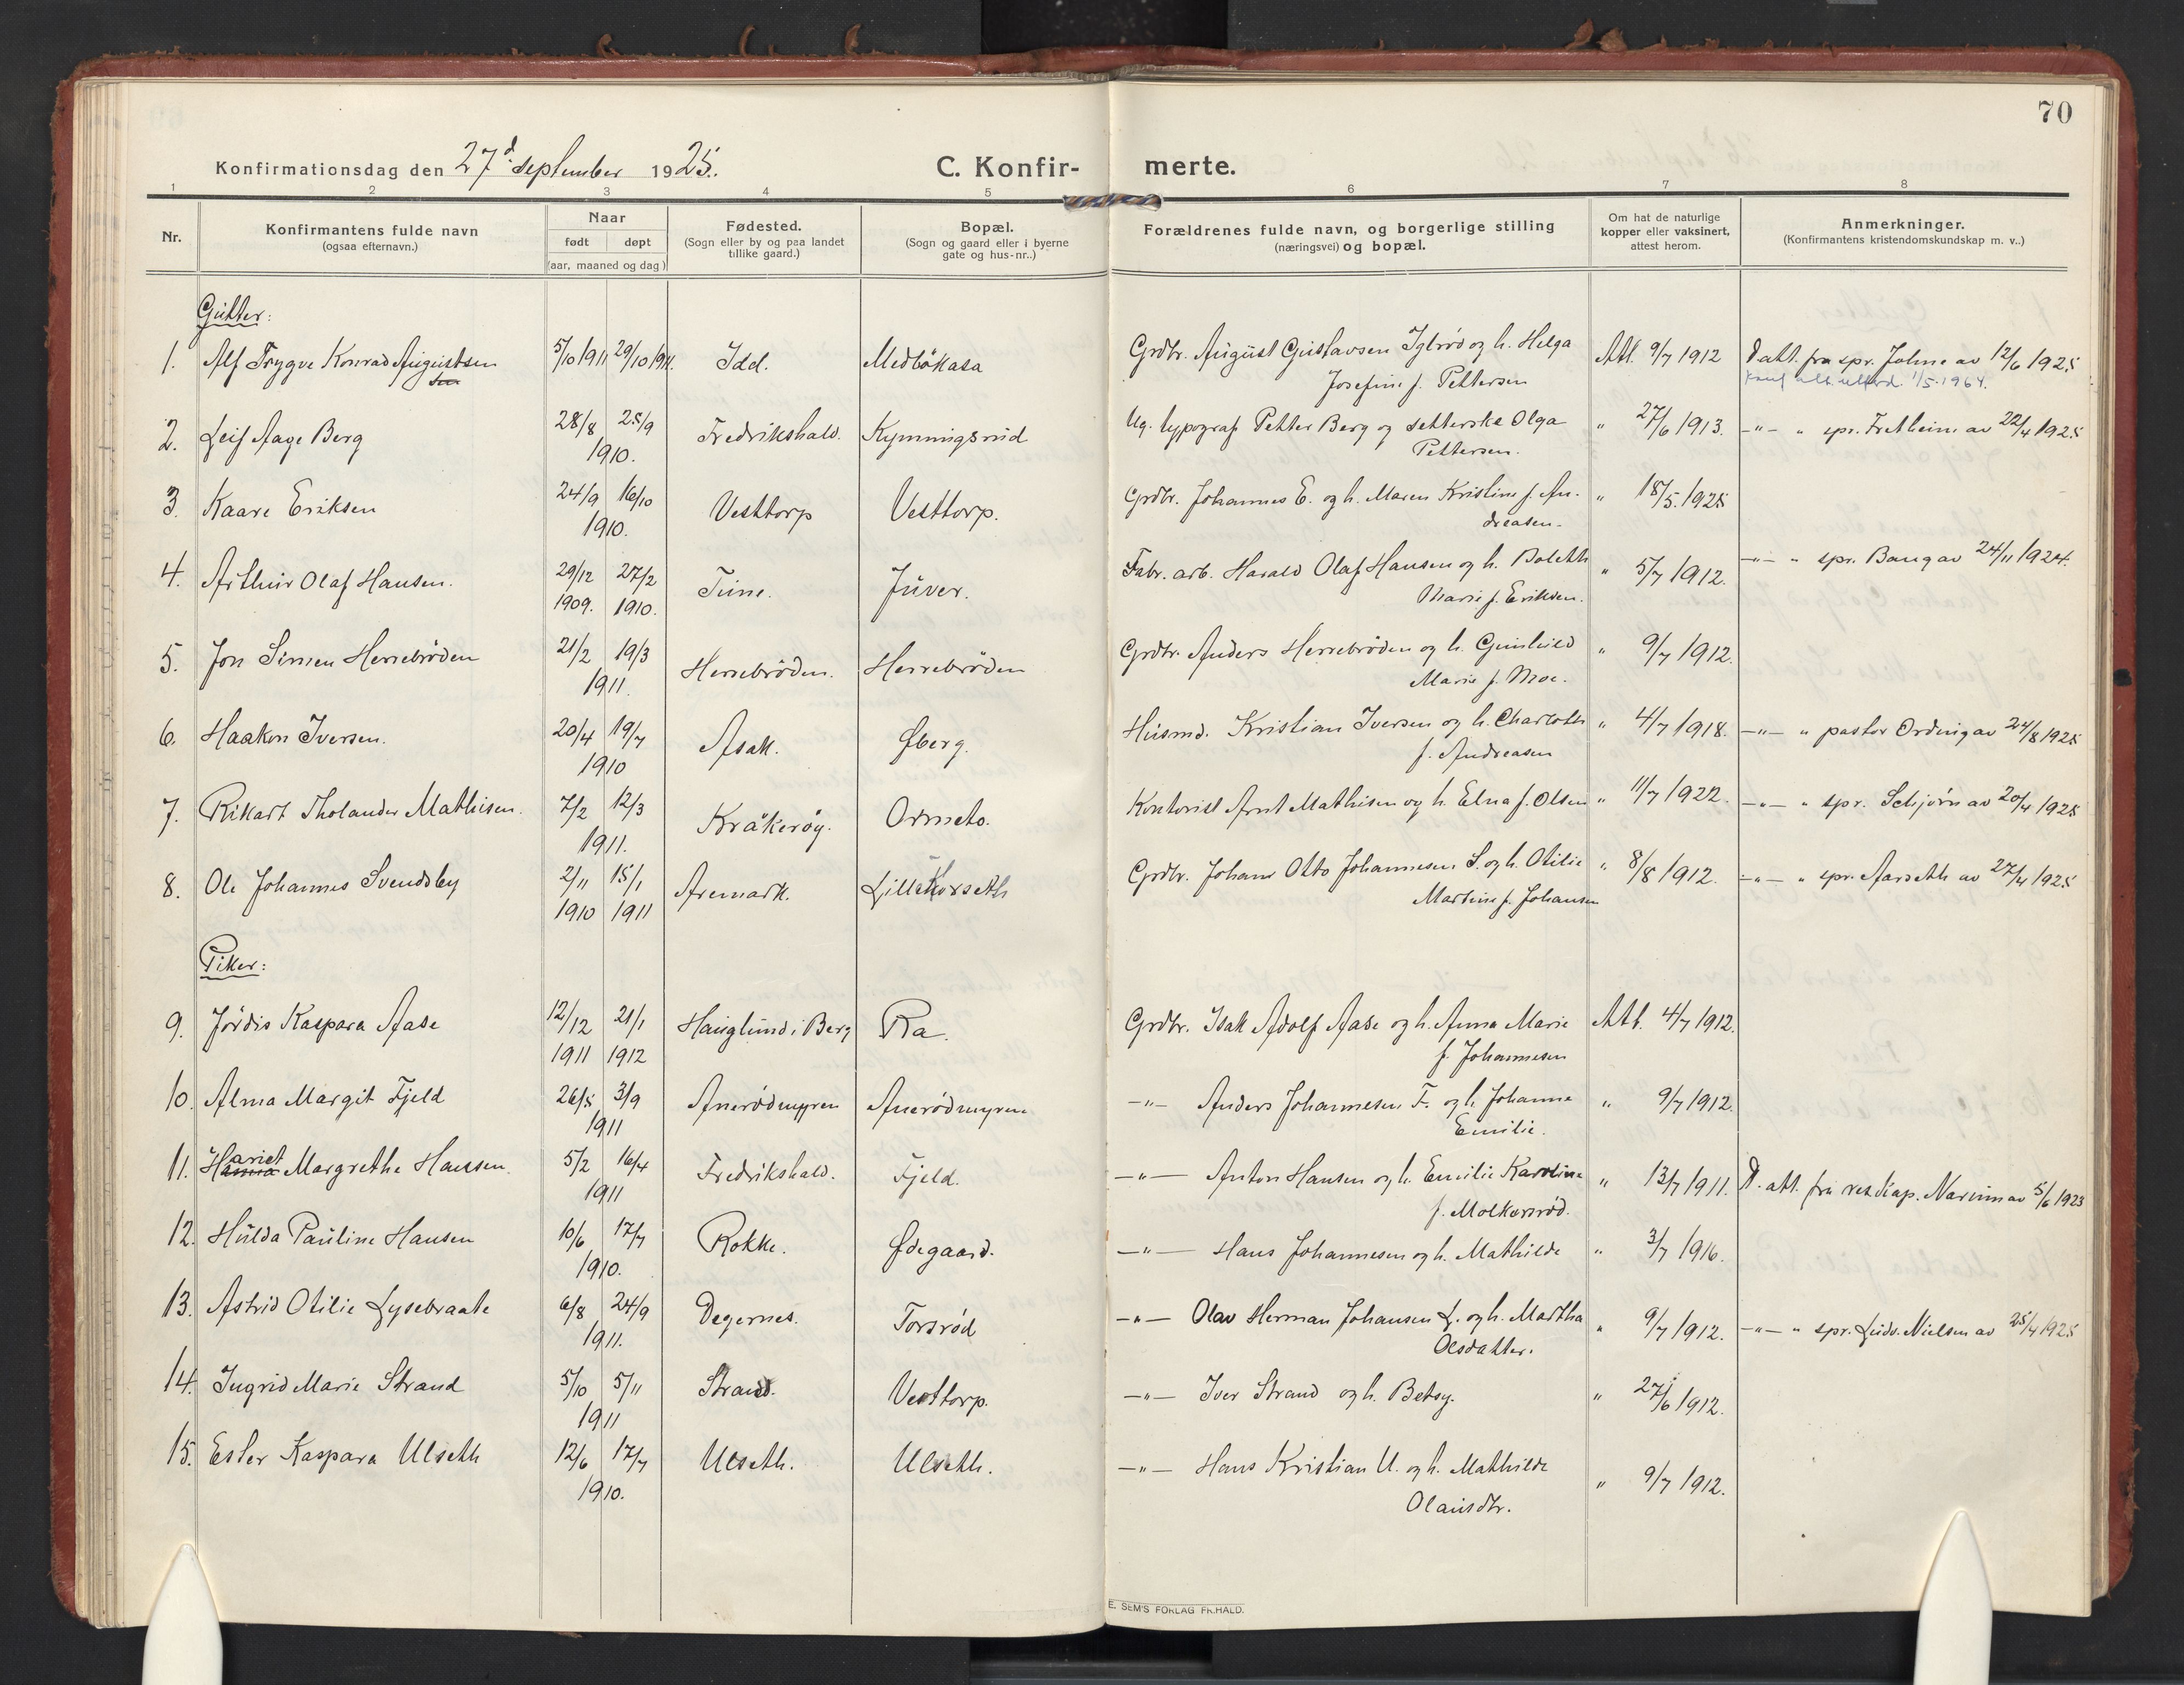 70
Konfirmationsdag den 27d. september 1925.
C. Konfir- merte.
1 2 3 4 5 6 7 8
Nr.
Konfirmantens fulde navn
(ogsaa efternavn.)
Naar
født døpt
(aar, maaned og dag)
Fødested.
(Sogn eller by og paa landet
tillike gaard.)
Bopæl.
(Sogn og gaard eller i byerne
gate og hus-nr..)
Forældrenes fulde navn, og borgerlige stilling
(næringsvei) og bopæl.
Om hat de naturlige
kopper eller vaksinert,
attest herom.
Anmerkninger.
(Konfirmantens kristendomskundskap m. v..)
Gutter:
1. Alf Trygve Konrad Augustsen 5/10 1911 29/10 1911. Idd. Medbökasa Grdbr. August Gustavsen Iglerød og h. Helga Att. 9/7 1912 D. att. fra spr. Jolme av 12/6 1925
Josefine f. Pettersen 1/5-1964.
2. Leif Aage Berg 28/8 25/9 Fredrikshald. Kynningsrud Ug. typograf Petter Berg og setterske Olga " 27/6 1913. -"- " spr. Fretheim av 22/4 1925
1910. Pettersen.
3. Kaare Eriksen 24/9 16/10 Vesttorp Vesttorp. Grdbr. Johannes E. og h. Maren Kristine f. An- " 18/5. 1925
1910. dreasen.
4. Arthur Olaf Hansen. 29/12 27/2 Tune. Juver. Fabr. arb. Harald Olaf Hansen og h. Boleth " 5/7 1912. -"- " spr. Bang av 24/11 1924.
1909. 1910. Marie f. Eriksen.
5. Jon Simen Herrebröden 21/2 19/3 Herrebröden. Herrebröden Grdbr. Anders Herrebröden og h. Gunhild " 9/7 1912.
1911. Marie f. Moe.
6. Haakon Iversen. 20/4 19/7 Asak. Øberg. Husmd. Kristian Iversen og h. Charlotte " 4/7 1918. -"- " pastor Ording av 24/8 1925
1910 f. Andreasen
7. Rikart Tholander Mathisen. 7/2 12/3 Kråkerøy. Ormeto. Kontorist Arnt Mathisen og h. Elna f. Olsen " 11/7 1922. -"- " spr. Schjörn av 20/4 1925
1911.
8. Ole Johannes Svendsby 2/11 15/1 Aremark. Lille Korseth Grdbr. Johan Otto Johannesen S. og h. Otilie " 8/8 1912. -"- " spr. Aarseth av 27/4 1925
1910 1911 Martine f. Johansen
Piker:
9. Jördis Kaspara Aase 12/12 21/1 Hauglund i Berg Ra. Grdbr. Isak Adolf Aase og h. Anna Marie Att. 4/7 1912.
1911 1912 f. Johannesen
10. Alma Margit Fjeld 26/5 3/9 Anerödmyren Anerödmyren -"- Anders Johannesen F. og h. Johanne " 9/7 1912.
1911 Emilie.
11. Hariet Margrethe Hansen. 5/2 16/4 Fredrikshald. Fjeld. -"- Anton Hansen og h. Emilie Karoline " 13/7 1911. D. att. fra res. kap. Narum av 5/6 1923
1911 f. Molkersrød.
12. Hulda Pauline Hansen 10/6 17/7 Rokke. Ødegaard. -"- Hans Johannesen og h. Mathilde " 3/7 1916.
1910.
13. Astrid Otilie Lysebraate 6/8 24/9 Degernes. Torsrød -"- Olav Herman Johansen L. og h. Martha " 9/7 1912. -"- " spr. Ludv. Nielsen av 25/4 1925
1911. Olsdatter.
14. Ingrid Marie Strand 5/10 5/11 Strand. Vesttorp. -"- Iver Strand og h. Betsy. " 27/6 1912.
1911
15. Ester Kaspara Ulseth 12/6 17/7 Ulseth. Ulseth. -"- Hans Kristian U. og h. Mathilde " 9/7 1912.
1910. Olausdtr.
E. SEM'S FORLAG FR.HALD.